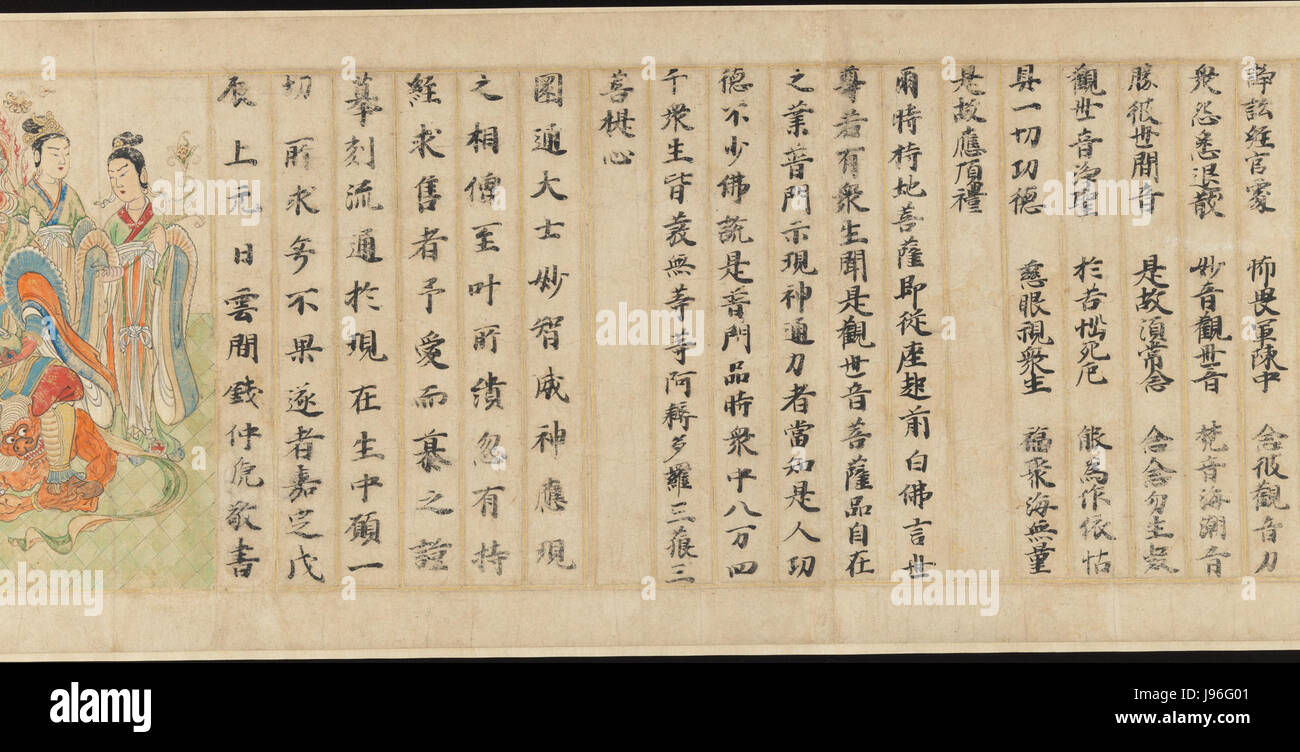 諍訟經官處 怖畏軍陳中 念彼觀音力
衆怨悉退散 妙音觀世音 梵音海潮音
勝彼世間音 是故須常念 念念勿生疑
觀世音淨聖 於苦惱死厄 能為作依怙
具一切功德 慈眼視衆生 福聚海無量
是故應頂禮
爾時持地菩薩即從座起前白佛言世
尊若有衆生聞是觀世音菩薩品自在
之業普門示現神通力者當知是人功
德不少佛說是普門品時衆中八万四
千衆生皆發無等等阿耨多羅三藐三
菩提心
圓通大士妙智威神應現
之相傳至叶所繢忽有持
經求售者予愛而募之謹
摹刻流通於現在生中願一
切所求無不果遂者嘉定戊
辰上元日雲間錢仲虎敬書
a
alamy
alamy
Image ID: J96G01
www.alamy.com